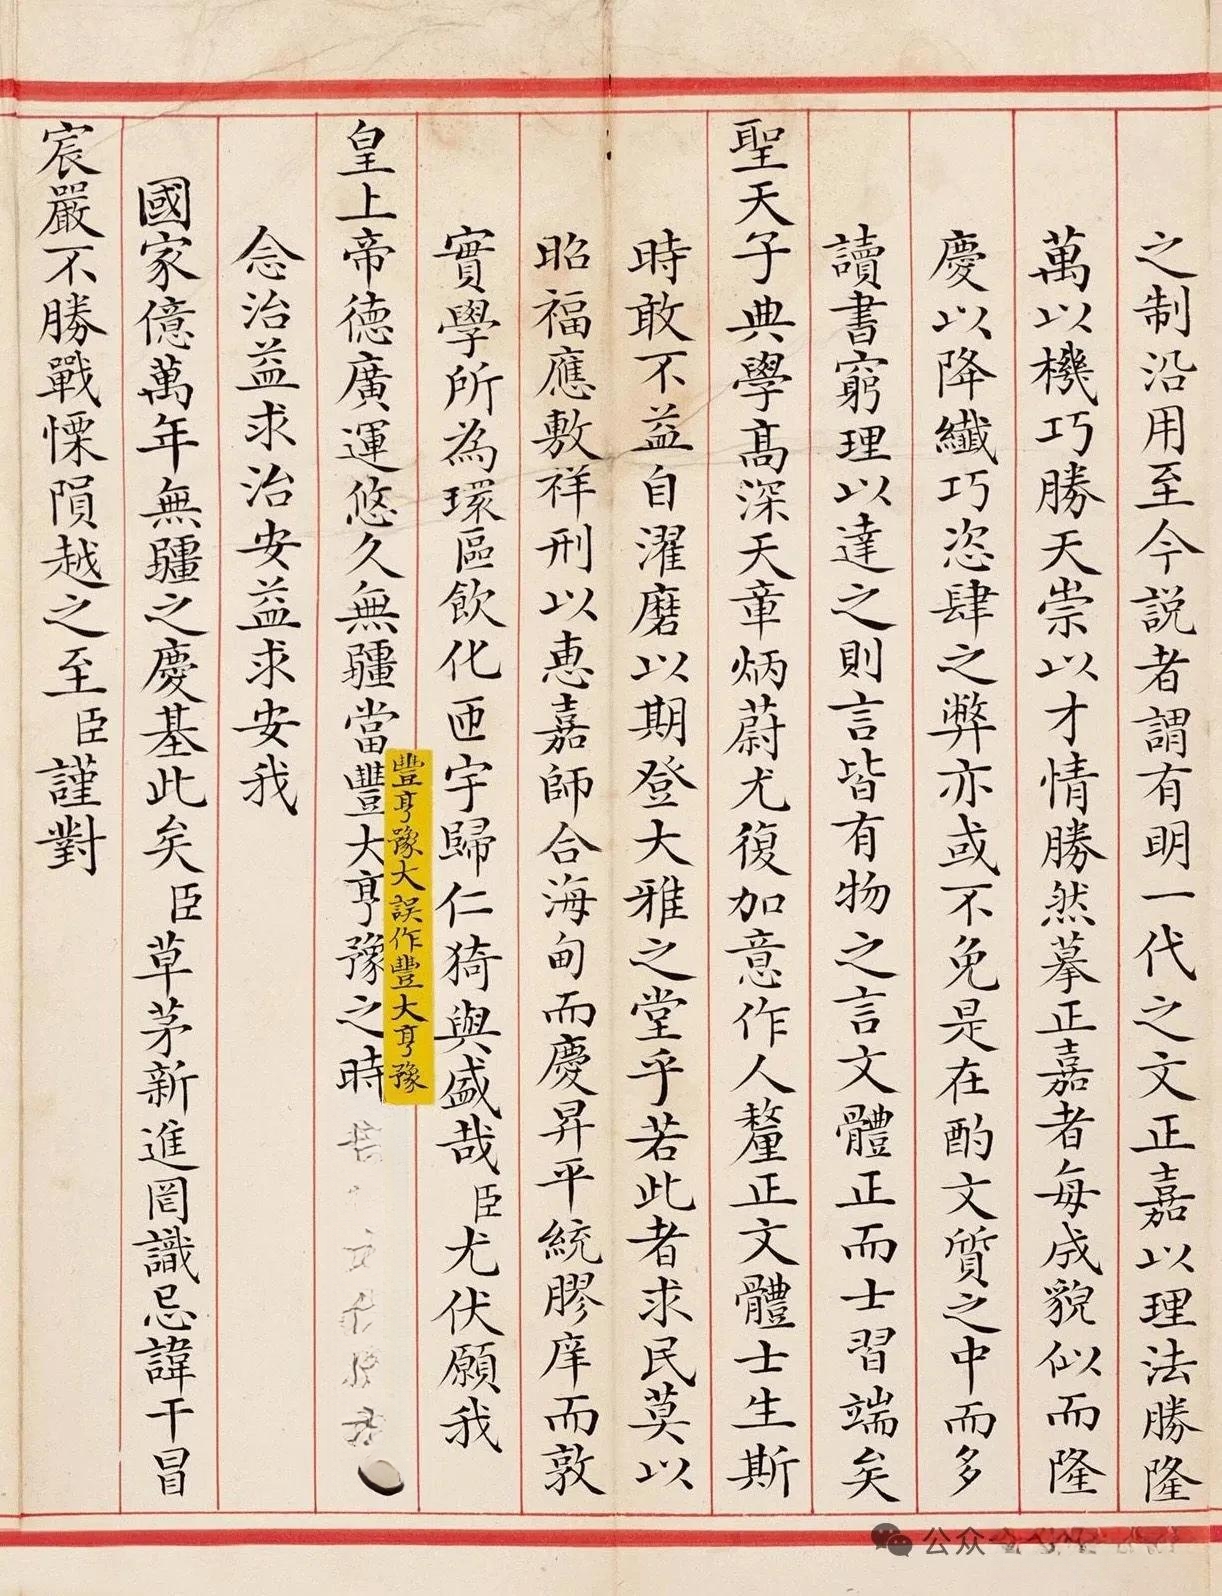 之制沿用至今説者謂有明一代之文正嘉以理法勝隆
萬以機巧勝天崇以才情勝然摹正嘉者每成貌似而隆
慶以降纖巧恣肆之弊亦或不免是在酌文質之中而多
讀書窮理以達之則言皆有物之言文體正而士習端矣
聖天子典學高深天章炳蔚尤復加意作人釐正文體士生斯
時敢不益自濯磨以期登大雅之堂乎若此者求民莫以
昭福應敷祥刑以惠嘉師合海甸而慶昇平統膠庠而敦
實學所為環區飲化匝宇歸仁猗與盛哉臣尤伏願我
豐亨豫大誤作豐大亨豫
皇上帝德廣運悠久無疆當豐大亨豫之時
念治益求治安益求安我
國家億萬年無疆之慶基此矣臣草茅新進罔識忌諱干冒
宸嚴不勝戰慄隕越之至臣謹對
公众